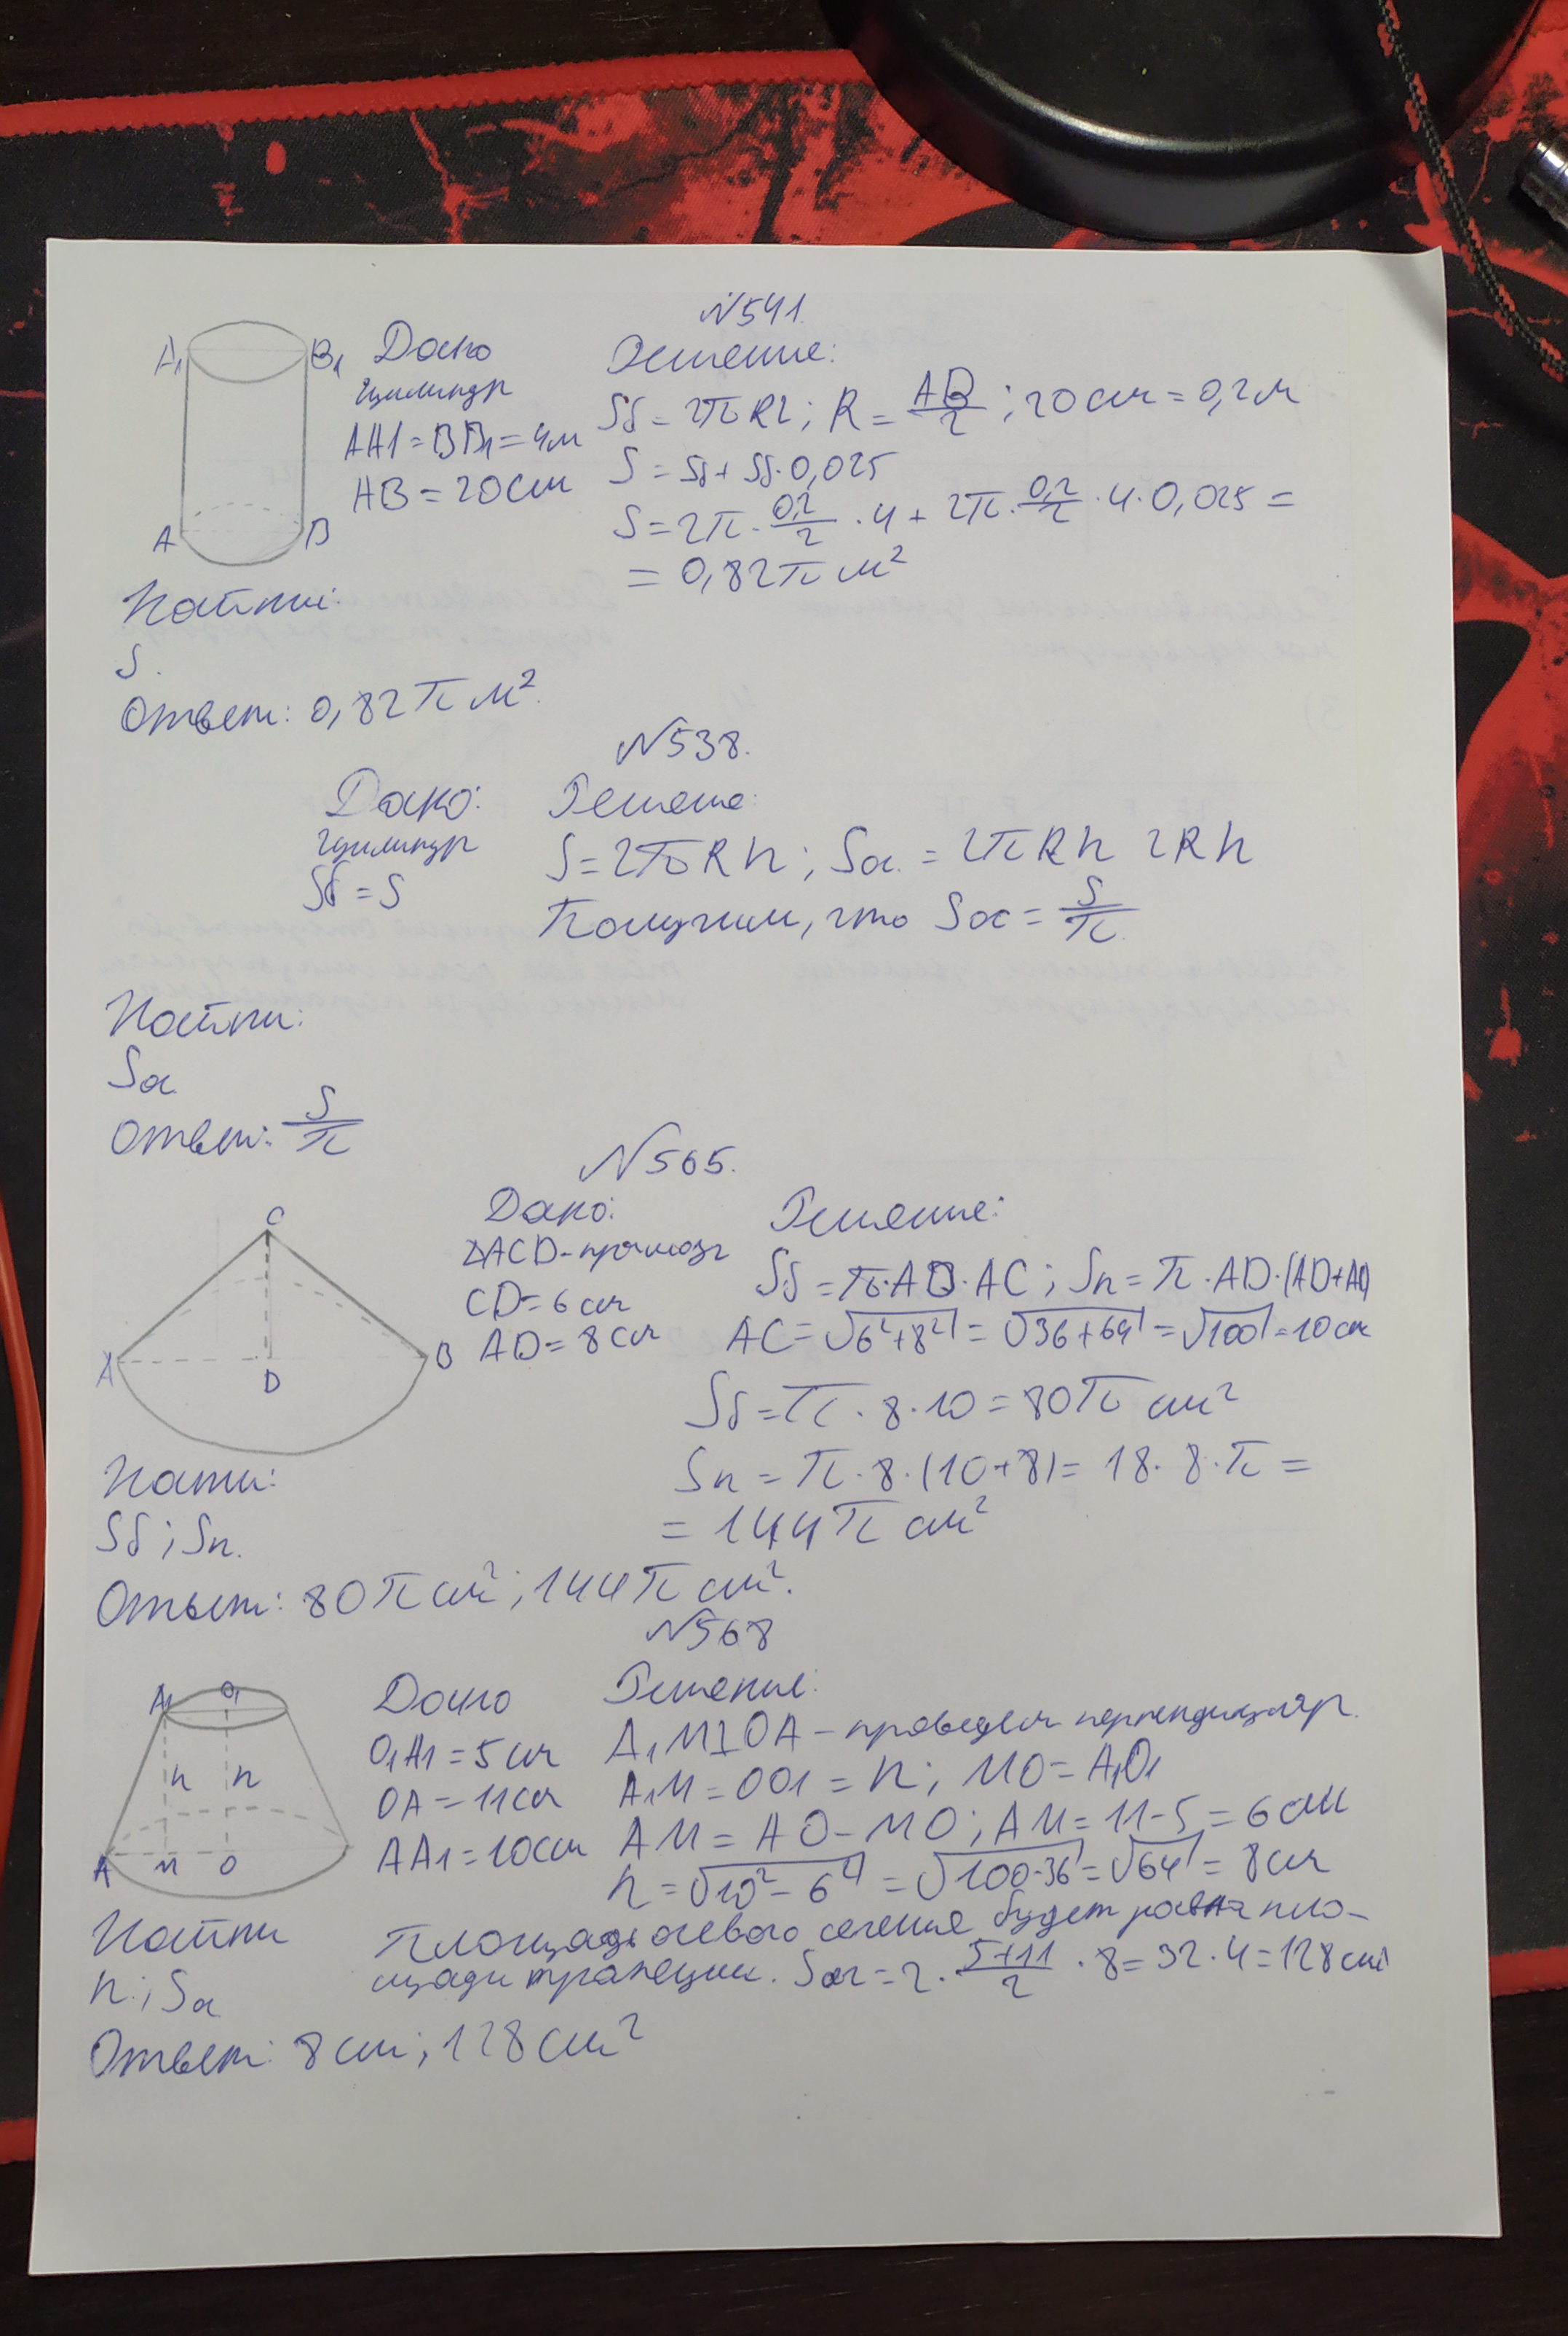 N541.
A₁ B₁ A B
Дано
Цилиндр
AA1 = BB₁ = 4м
AB = 20см
Решение:
Sб = 2πRl; R = AB/2; 20см = 0,2м
S = Sб + Sб·0,025
S = 2π·0,2/2·4 + 2π·0,2/2·4·0,025 =
= 0,82π м²
Найти:
S.
Ответ: 0,82π м².
N538.
Дано:
Цилиндр
Sб = S
Решение:
S = 2πRh; Sос. = 2πRh 2Rh
Получим, что Sос = S/π.
Найти:
Sос
Ответ: S/π
N565.
C A D B
Дано:
ΔACD - прямоуг
CD = 6 см
AD = 8 см
Решение:
Sб = π·AD·AC; Sп = π·AD·(AD+AC)
AC = √6²+8² = √36+64 = √100 = 10 см
Sб = π·8·10 = 80π см²
Sп = π·8·(10+8) = 18·8·π =
= 144π см²
Найти:
Sб; Sп.
Ответ: 80π см²; 144π см².
N568
A₁ O₁ h h A M O
Дано
O₁A1 = 5 см
OA = 11 см
AA1 = 10см
Решение:
A₁M⊥OA - проведём перпендикуляр.
A₁M = OO1 = h; MO = A₁O₁
AM = AO - MO; AM = 11-5 = 6 см
h = √10²-6² = √100-36 = √64 = 8 см
Площадь осевого сечения будет равна пло-
щади трапеции. Sос = 2·5+11/2·8 = 32·4 = 128 см²
Найти
h; Sос
Ответ: 8 см; 128 см²